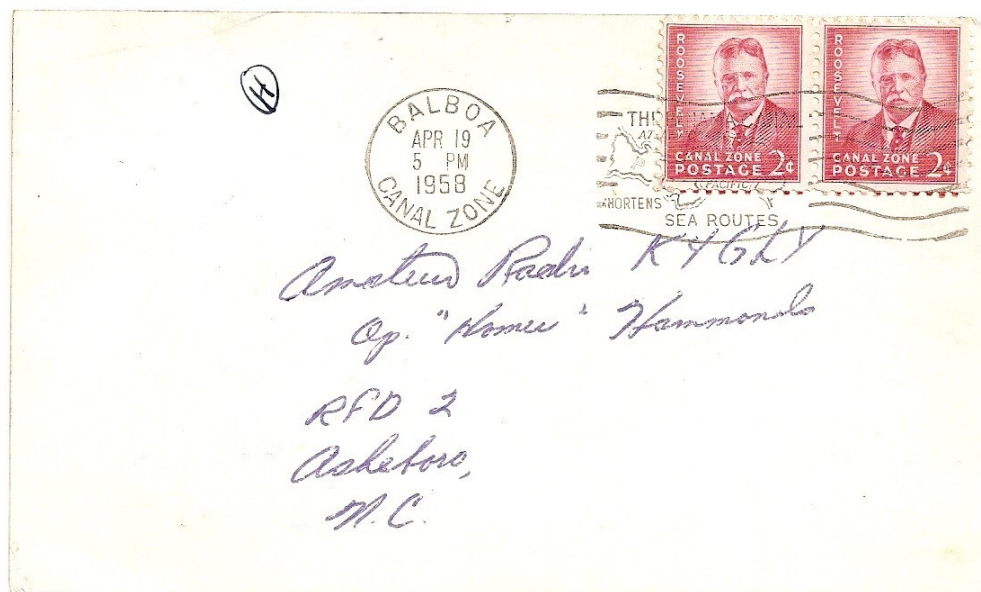 H
BALBOA
APR 19
5 PM
1958
CANAL ZONE
ROOSEVELT
CANAL ZONE
POSTAGE 2¢
ROOSEVELT
CANAL ZONE
POSTAGE 2¢
PACIFIC
SHORTENS
SEA ROUTES
Amateur Radio K4GLY
Op. "Homer" Hammonds
RFD 2
Asheboro,
N.C.